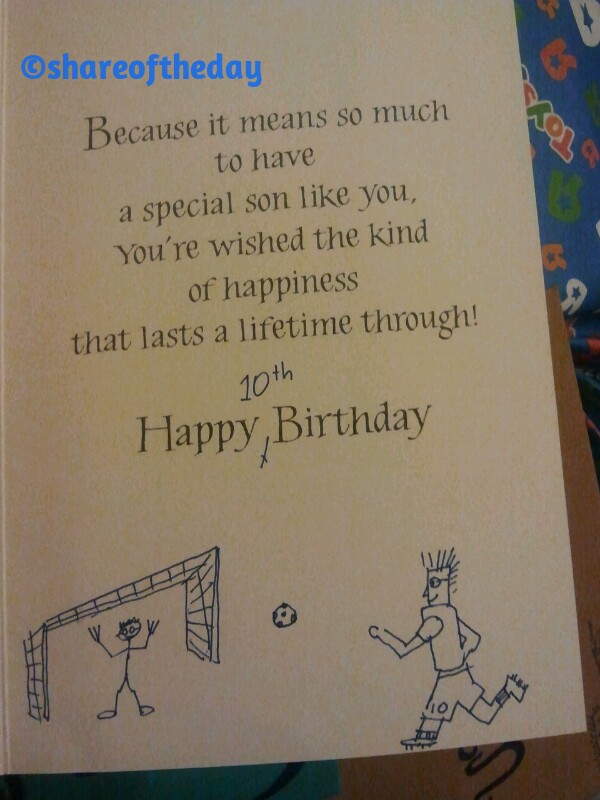 ©shareoftheday
Because it means so much
to have
a special son like you,
You're wished the kind
of happiness
that lasts a lifetime through!
10th
Happy Birthday
10